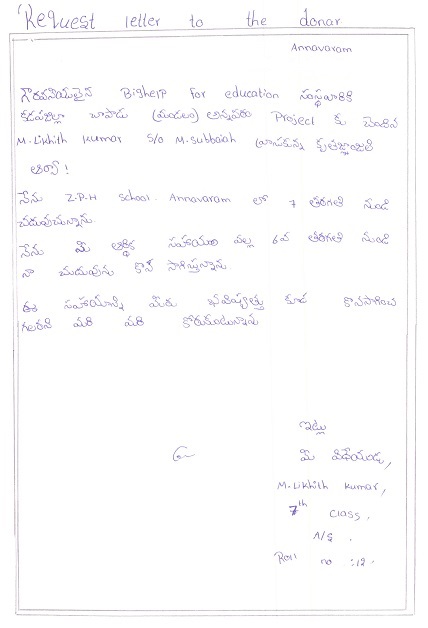 Request letter to the donar
Annavaram
గౌరవనీయులైన Bighelp For education సంస్థవారికి
కడపజిల్లా చాపాడు (మండలం) అన్నవరం Project కు చెందిన
M.Likhith kumar S/o M.Subbaiah వ్రాసుకున్న కృతజ్ఞాంజలి
ఆర్యా!
నేను Z.P.H School. Annavaram లో 7 తరగతి నుండి
చదువుచున్నాను
నేను మీ ఆర్థిక సహాయం వల్ల 6వ తరగతి నుండి
నా చదువును కొన సాగిస్తున్నాను
ఈ సహాయాన్ని మీరు భవిష్యత్తు కూడ కొనసాగించ
గలరని మరి మరి కోరుకుంటున్నాను
ఇట్లు
మీ విధేయుండు,
M.Likhith kumar,
7th Class,
A/S.
Roll no :12.